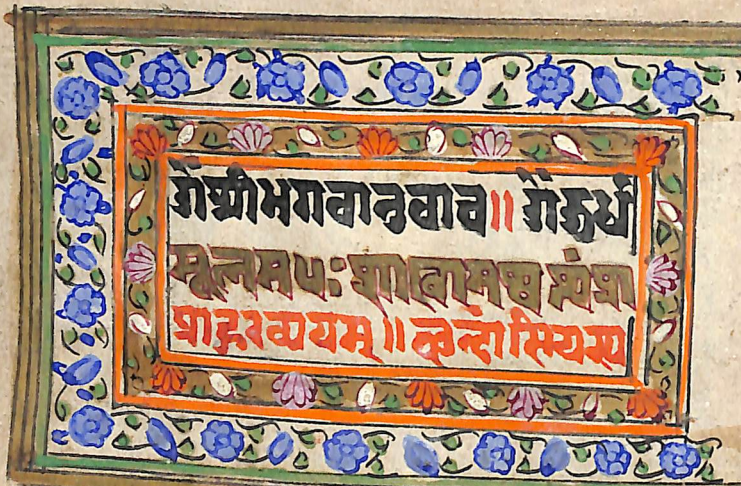 ॐ श्रीभगवानुवाच॥ ॐ ऊर्ध
मूलमधः शाखामश्वत्थंप्रा
प्राहुरव्ययम्॥ छन्दांसियस्य